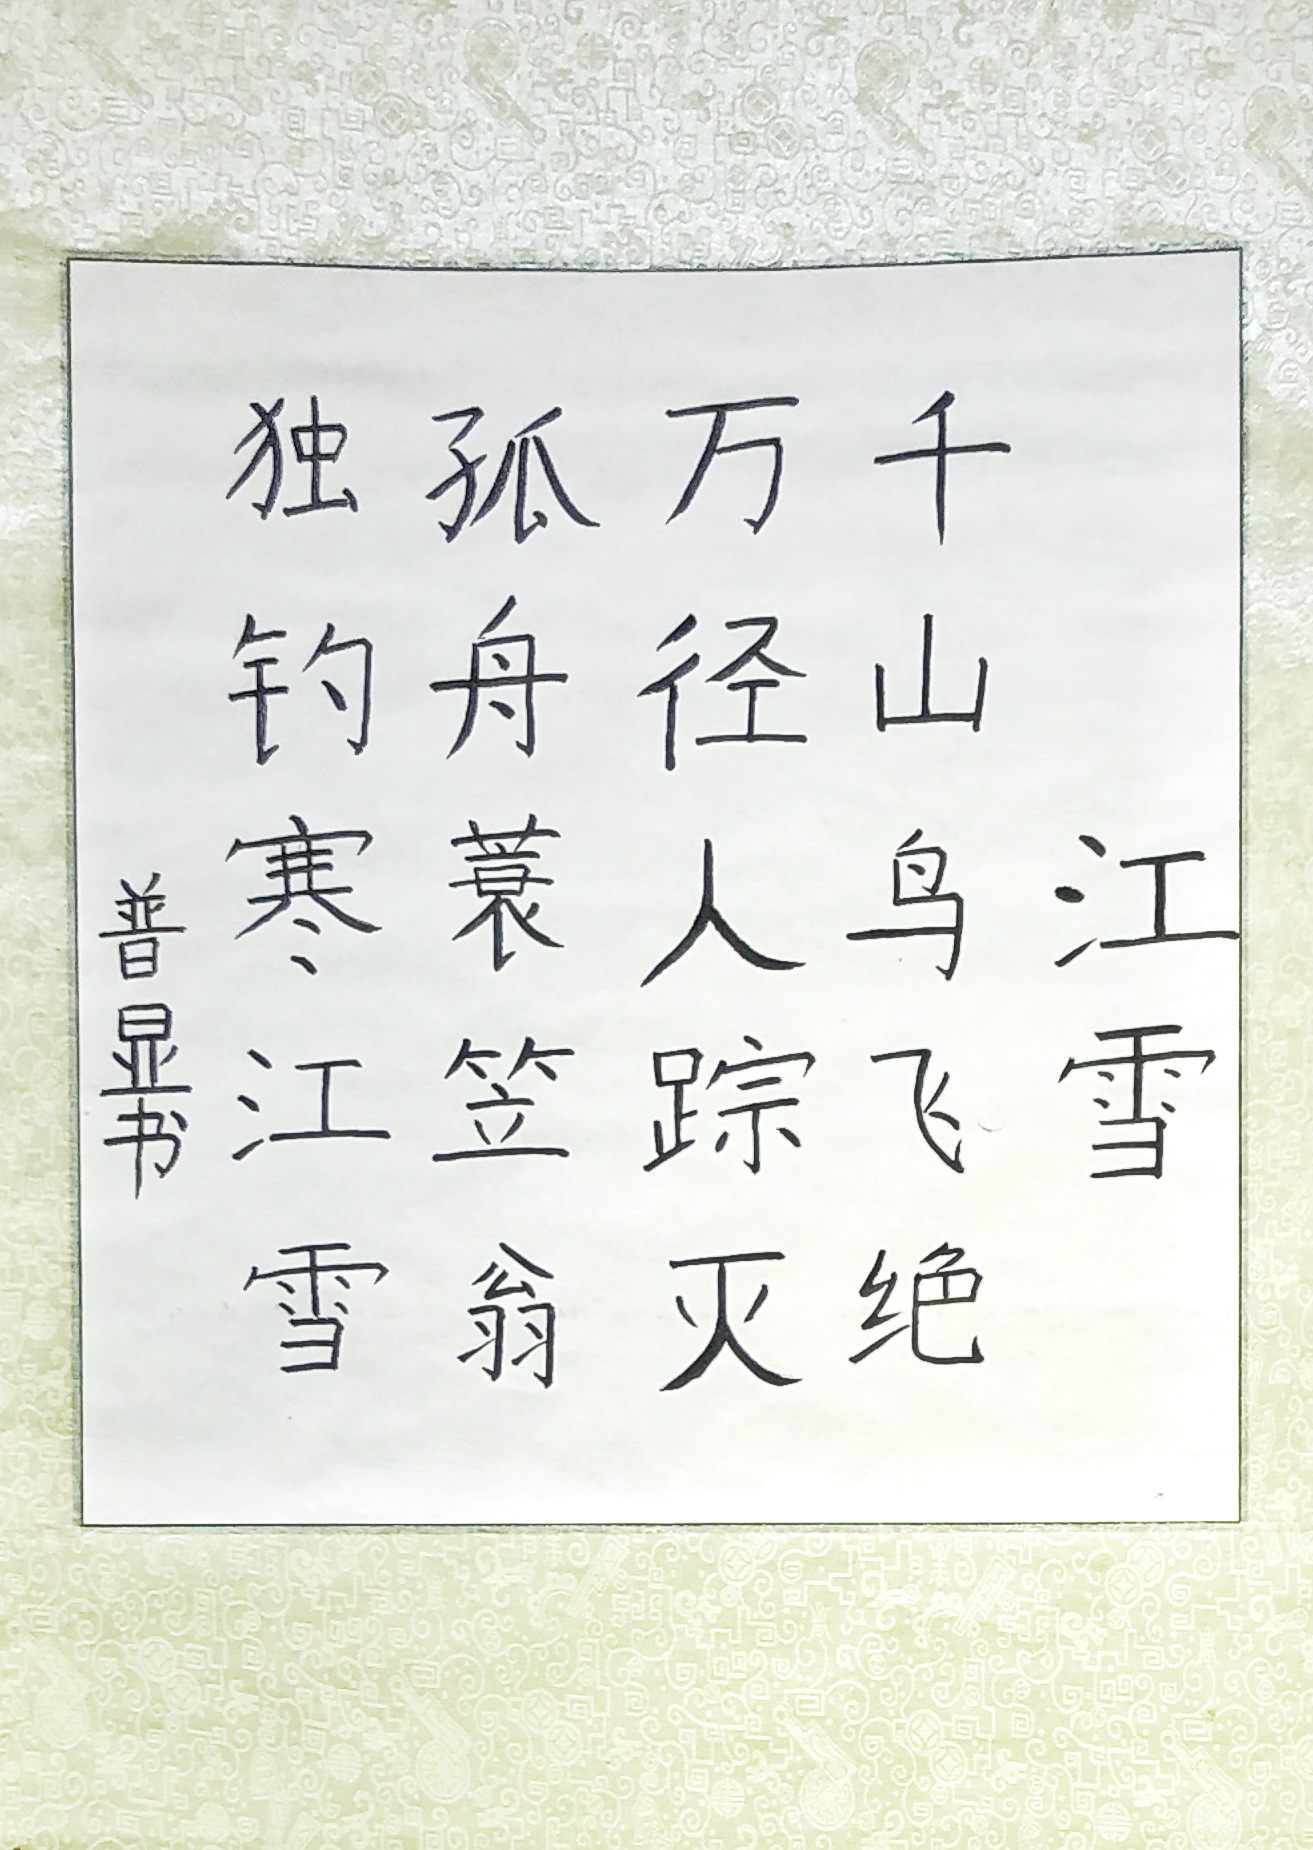 江雪
千山鸟飞绝
万径人踪灭
孤舟蓑笠翁
独钓寒江雪
普显书